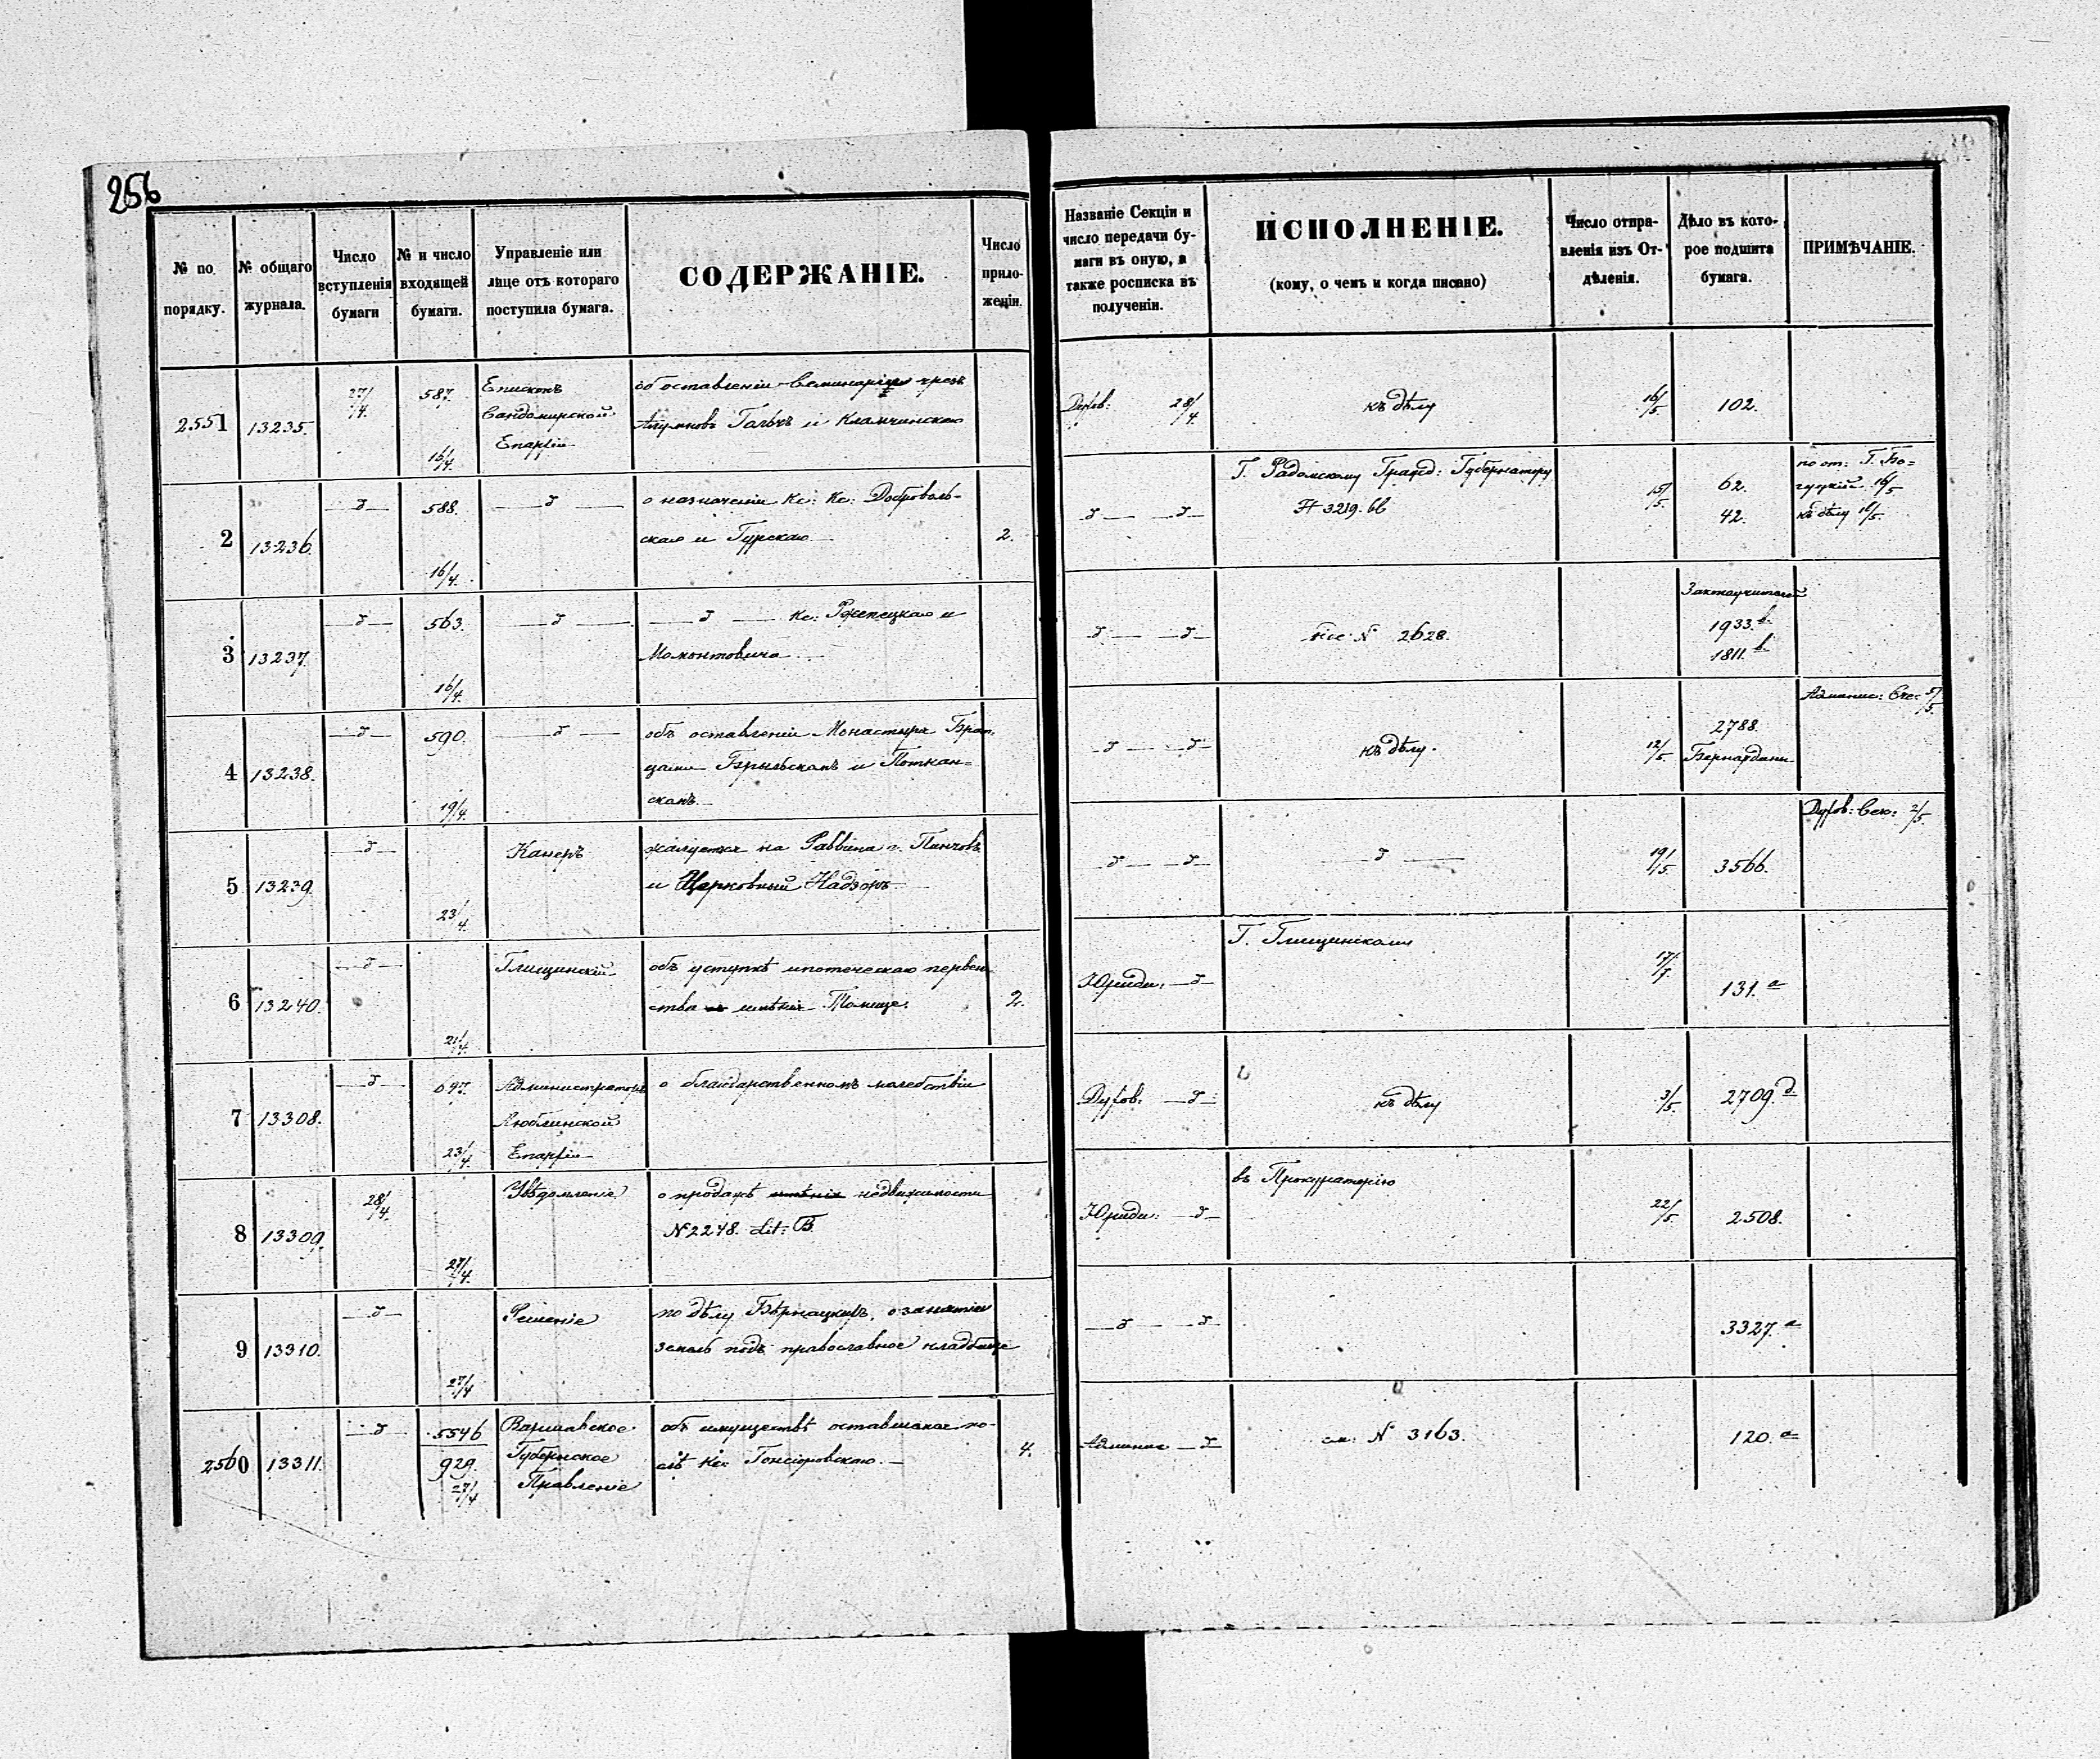 256
№ по порядку.
№ общаго журнала.
Число вступленія бумаги
№ и число входящей бумаги.
Управленіе или лице отъ котораго поступила бумага.
СОДЕРЖАНІЕ.
Число приложеній.
Названіе Секціи и число передачи бумаги въ оную, а также росписка въ полученіи.
ИСПОЛНЕНІЕ.
(кому, о чемъ и когда писано)
Число отправленія изъ Отдѣленія.
Дѣло въ которое подшита бумага.
ПРИМѢЧАНІЕ.
2551 13235. 27/4. 587. 16/4.
Епископъ
Сандомирской
Епархіи
об оставленіи Семинаріи чрезъ
Алумновъ и
28/4
къ дѣлу
16/5
102.
2 13236. —д— 588. 16/4.
—д—
о назначеніи Кс: Кс: Доброволь-
скаго и Гурскаго
2.
—д— —д—
Г. Радомскому Гражд: Губернатору
№ 3219. 66
15/5.
62.
42.
по от: Г. Бо=
16/5
къ дѣлу 16/5.
3 13237. —д— 563. 16/4.
—д—
—д— Кс: и
Мамонтовича
—д— —д—
№ 2628.
Законоучителей
1933. b.
1811. b.
4 13238. —д— 590. 19/4.
—д—
объ оставленіи Монастыря Брат.
цами и
скимъ.
—д— —д—
къ дѣлу.
12/5.
2788.
Бернардини
Админис: Сек: 5/5.
5 13239. —д— 23/4
Канеръ
жалуется на Раввина г. Пинчовъ
и Церковный Надзоръ
—д— —д—
—д—
19/5.
3566.
Духов: Сек: 2/5.
6 13240. —д— 21/4.
Глищинскій
объ уступкѣ ипотеческаго первен-
ства имѣнія
2.
Юриди: —д—
Г. Глищинскому
17/7.
131. a
7 13308. —д— 697. 23/4.
Администраторъ
Люблинской
Епархіи
о благодарственномъ молебствіи
Духов: —д—
къ дѣлу
3/5.
2709. d
8 13309. 28/4. 27/4.
Увѣдомленіе
о продажѣ имѣнія недвижимости
№ 2248. Lit: B.
Юриди: —д—
въ Прокураторію
22/5.
2508.
9 13310. —д— 27/4
Решеніе
по дѣлу Бѣрнацкихъ, о занятіи
земль подъ православное кладбище
—д— —д—
3327. a
2560 13311. —д— 5546
929. 27/4
Варшавское
Губернское
Правленіе
объ имуществѣ оставшемся по-
слѣ Кс: Гонсіоровскаго.
4.
Админис —д—
см: № 3163.
120. a